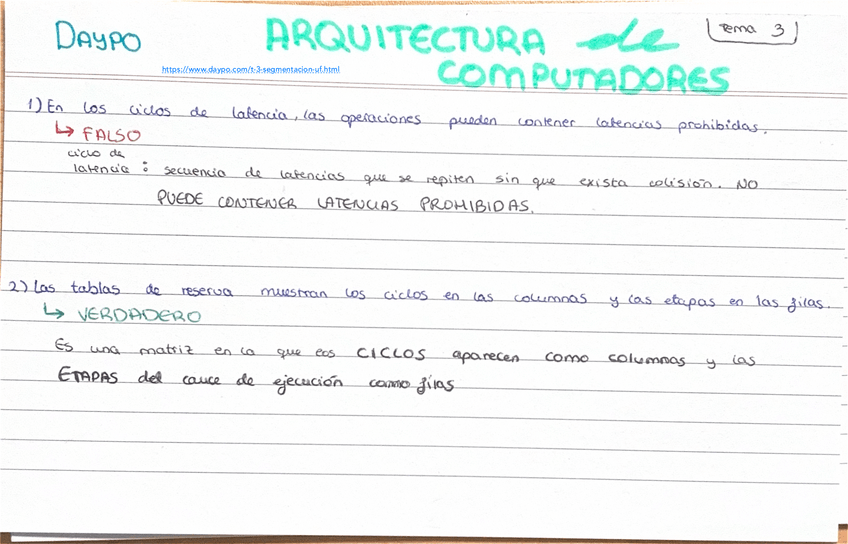 DAYPO
ARQUITECTURA de
Tema 3
COMPUTADORES
https://www.daypo.com/t-3-segmentacion-uf.html
1) En los ciclos de latencia, las operaciones pueden contener latencias prohibidas.
↳ FALSO
ciclo de
latencia : secuencia de latencias que se repiten sin que exista colisión. NO
PUEDE CONTENER LATENCIAS PROHIBIDAS.
2) Las tablas de reserva muestran los ciclos en las columnas y las etapas en las filas.
↳ VERDADERO
Es una matriz en la que los CICLOS aparecen como columnas y las
ETAPAS del cauce de ejecución como filas